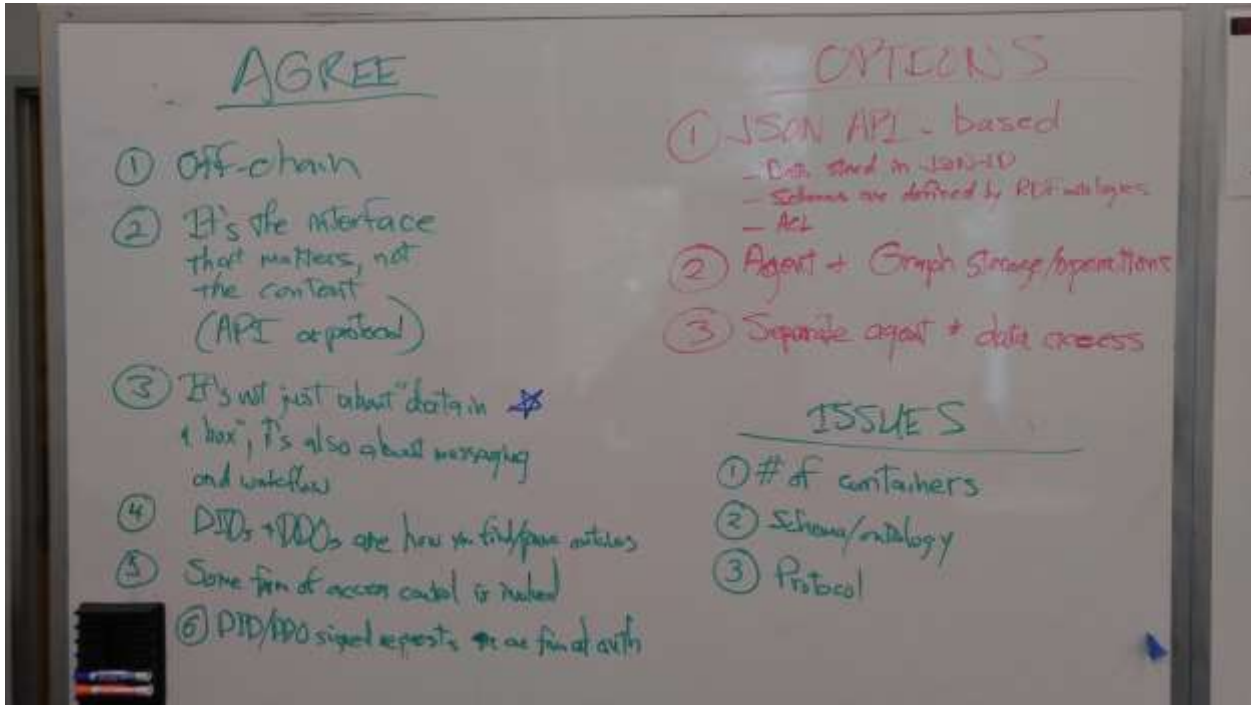 AGREE
① Off-chain
② It's the interface
that matters, not
the content
(API or protocol)
③ It's not just about "data in
a box", it's also about messaging
and workflow
④ DIDs + DDOs are how you find/prove
⑤ Some form of access control is involved
⑥ DID/DDO signed requests are one form of auth
OPTIONS
① JSON API - based
- Data stored in JSON-LD
- Schemas are defined by RDF ontologies
- ACL
② Agent + Graph storage/operations
③ Separate agent + data access
ISSUES
① # of containers
② Schema/ontology
③ Protocol